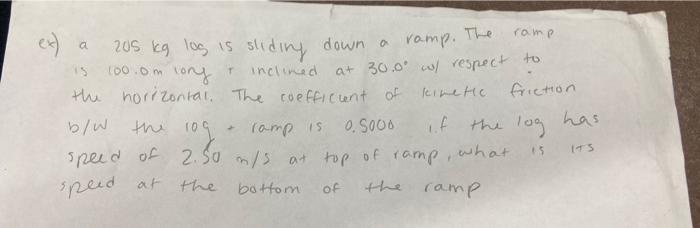 ex) a 205 kg log is sliding down a ramp. The ramp
is 100.0m long + inclined at 30.0° w/ respect to
the horizontal. The coefficient of kinetic friction
b/w the log + ramp is 0.5000 if the log has
speed of 2.50 m/s at top of ramp, what is its
speed at the bottom of the ramp